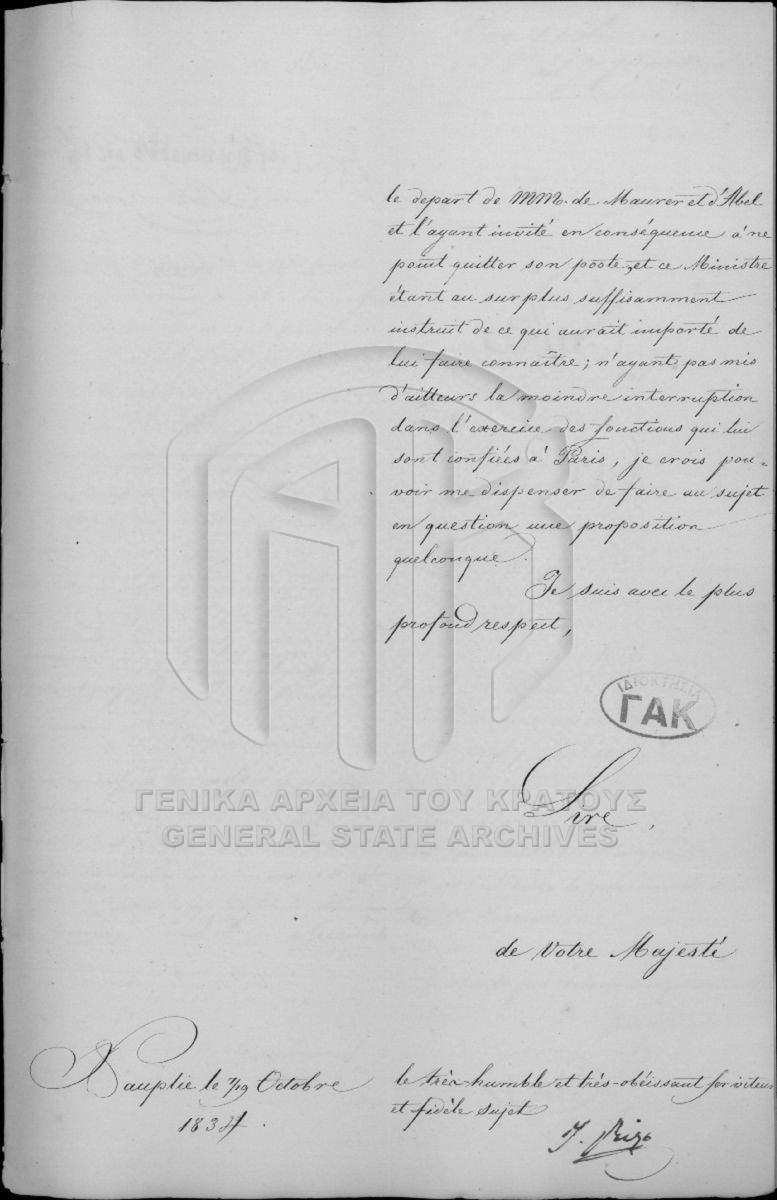 le depart de MM. de Maurer et d'Abel
et l'ayant invité en conséquence à ne
point quitter son poste, et ce Ministre
étant au surplus suffisamment
instruit de ce qui aurait importé de
lui faire connaître; n'ayant pas mis
d'ailleurs la moindre interruption
dans l'exercice des fonctions qui lui
sont confiées à Paris, je crois pou-
voir me dispenser de faire au sujet
en question une proposition
quelconque.
Je suis avec le plus
profond respect,
ΙΔΙΟΚΤΗΣΙΑ
ΓΑΚ
ΓΕΝΙΚΑ ΑΡΧΕΙΑ ΤΟΥ ΚΡΑΤΟΥΣ
GENERAL STATE ARCHIVES
Sire,
de Votre Majesté
Nauplie le 7/19 Octobre
1834.
le très-humble et très-obéissant serviteur
et fidèle sujet
J. Rizo